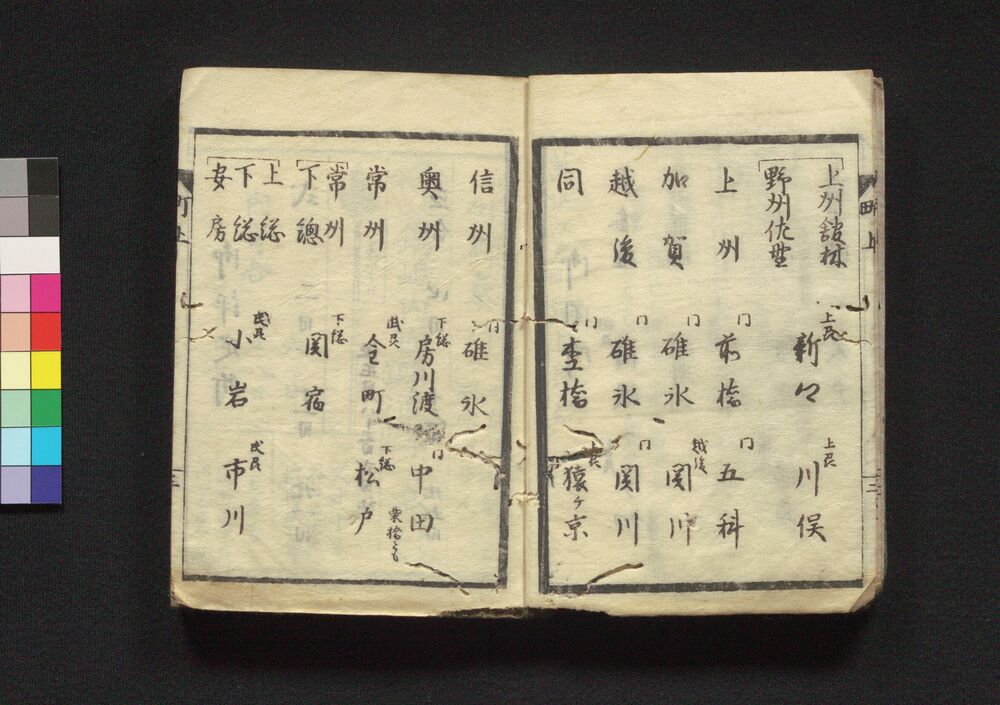 上州舘林
野州佐野
上州 新々
上州 川俣
上州
同 前橋
同 五科
加賀
同 碓氷
越後 関川
越後
同 碓氷
同 関川
同
同 杢橋
上州 猿ヶ京
信州
同 碓氷
奥州
下総 房川渡
同 中田
栗橋とも
常州
武州 金町
下総 松戸
常州
下總
下総 関宿
上総
下総
安房
武州 小岩
武州 市川